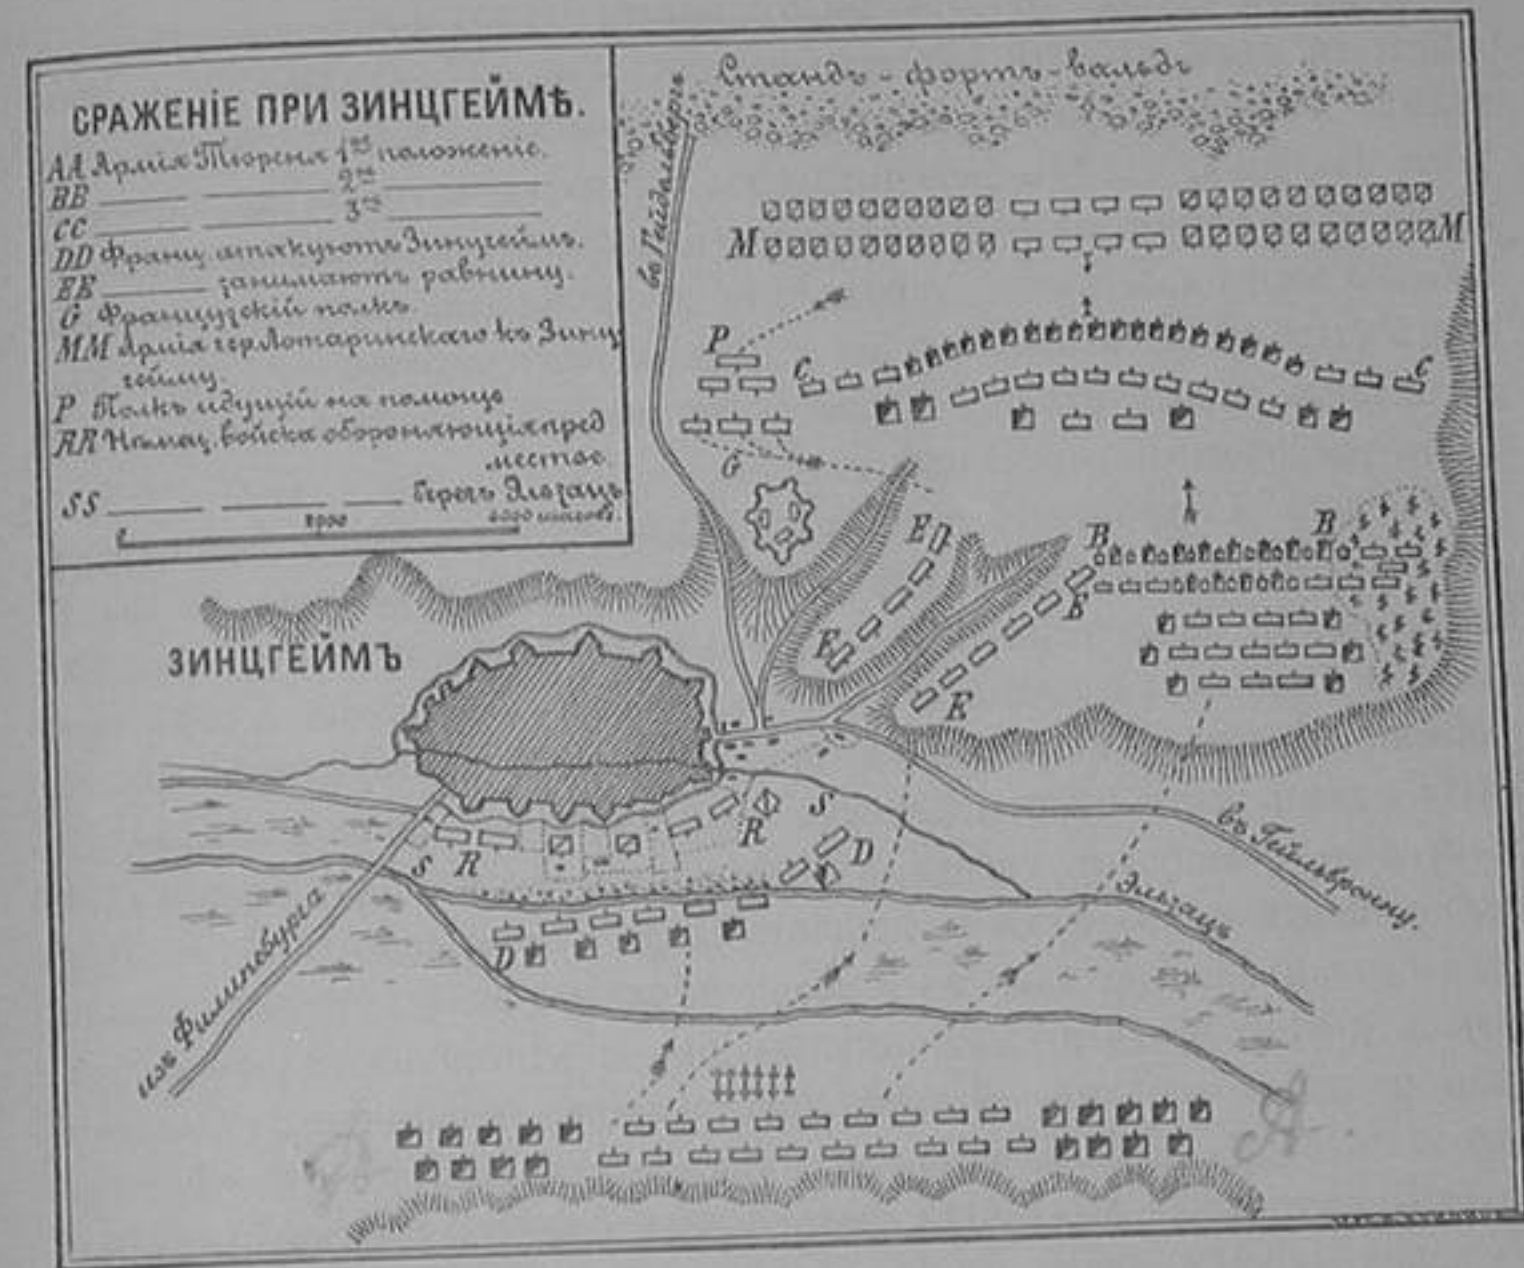 СРАЖЕНІЕ ПРИ ЗИНЦГЕЙМѢ.
AA Армія Тюреня 1ое положеніе.
BB 2ое
CC 3ье
DD Франц. атакуютъ Зинцгеймъ.
EE занимаютъ равнину.
G Французскій полкъ.
MM Армія гер. Лотарингскаго къ Зинц
гейму
P Полкъ идущій на помощь
RR Нѣмец. войска обороняющія пред
мѣстье
SS берегъ Эльзацъ
2000 4000 шаговъ.
Станд-фортъ-вальдъ
въ Гейдельбергъ
M M
P
C C
G
E
B B
E
Б
ЗИНЦГЕЙМЪ
E
S
R
S R D
въ Гейльброну.
Эльзацъ
D
изъ Филипсбурга
A